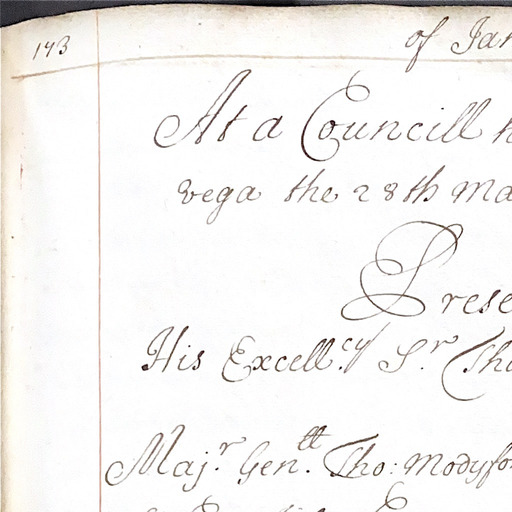 173 of Jan
At a Councill h
vega the 28th Ma
Prese
His Excell.cy Sr. Tho
Majr. Genll. Tho: Modyfo